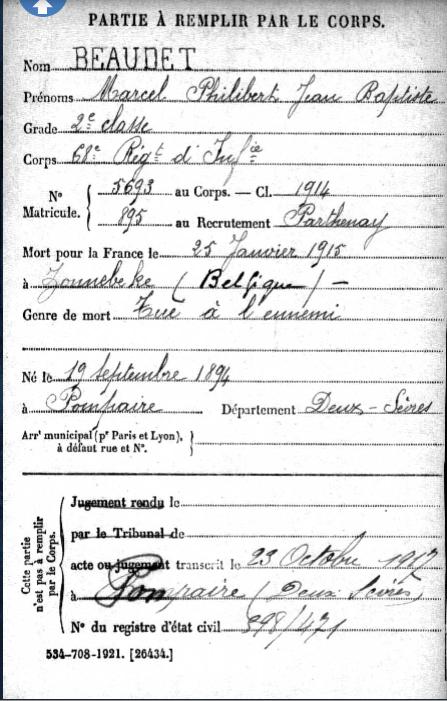 PARTIE À REMPLIR PAR LE CORPS.
Nom BEAUDET
Prénoms Marcel Philibert Jean Baptiste
Grade 2e classe
Corps 68e Régt d'Infie
No Matricule. { 5693 au Corps. — Cl. 1914
895 au Recrutement Parthenay
Mort pour la France le 25 Janvier 1915
à Zonnebeke (Belgique) —
Genre de mort Tué à l'ennemi
Né le 19 Septembre 1894
à Pompaire Département Deux-Sèvres
Arrt municipal (pr Paris et Lyon), }
à défaut rue et No.
Cette partie n'est pas à remplir par le Corps.
Jugement rendu le
par le Tribunal de
acte ou jugement transcrit le 23 Octobre 1917
à Pompaire (Deux Sèvres)
No du registre d'état civil 398/471
534-708-1921. [26434.]